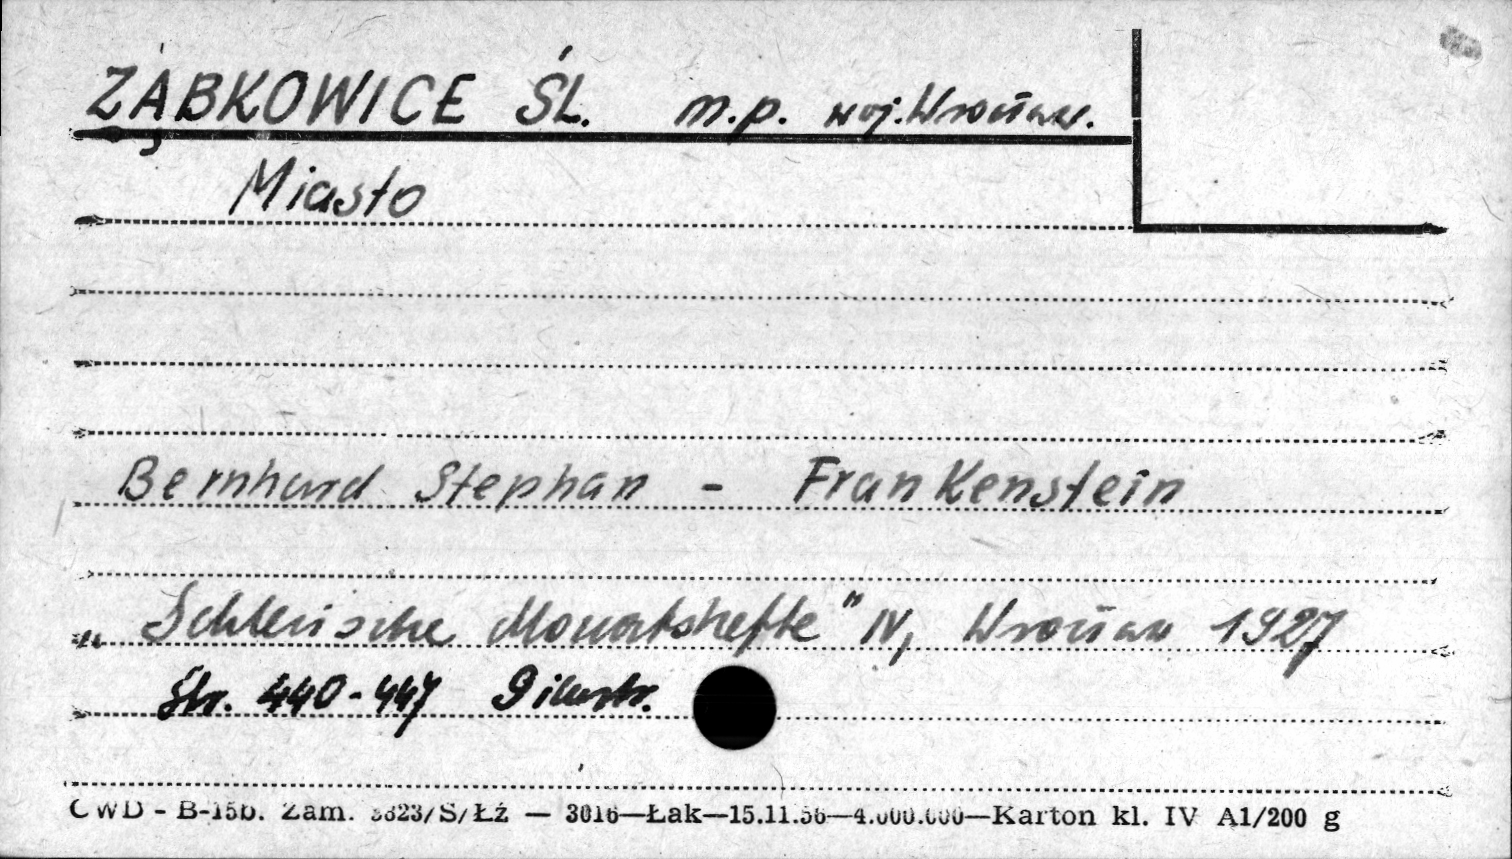 ZĄBKOWICE ŚL. m.p. woj. Wrocław.
Miasto
Bernhard Stephan - Frankenstein
„Schlesische Monatshefte" IV, Wrocław 1927
Str. 440-447 9 ilustr.
CWD - B-15b. Zam. 3823/S/Łź — 3016—Łak—15.11.56—4.000.000—Karton kl. IV A1/200 g